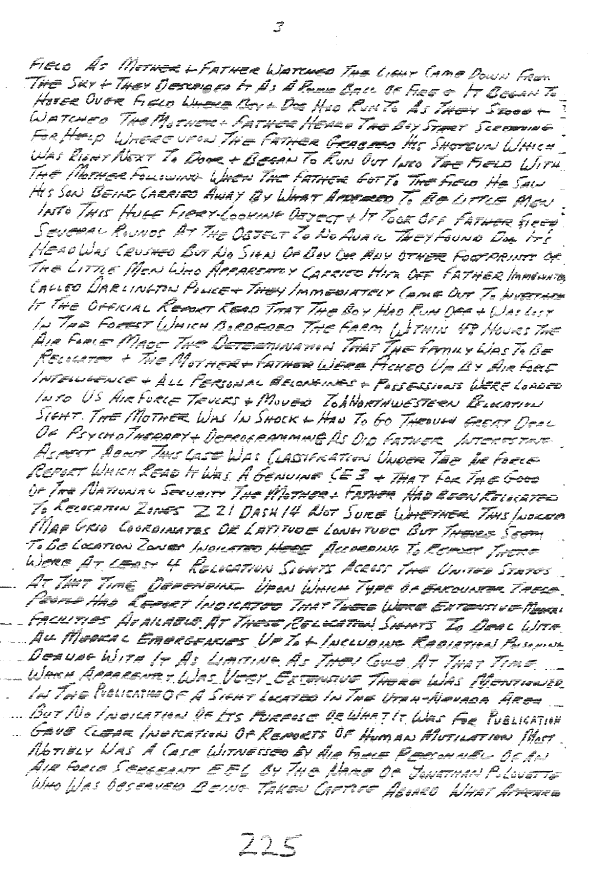 3
FIELD AS MOTHER + FATHER WATCHED THE LIGHT CAME DOWN FROM
THE SKY + THEY DESCRIBED IT AS A ROUND BALL OF FIRE + IT BEGAN TO
HOVER OVER FIELD WHERE BOY + DOG HAD RUN TO AS THEY STOOD +
WATCHED THE MOTHER + FATHER HEARD THE BOY START SCREAMING
FOR HELP WHERE UPON THE FATHER GRABBED HIS SHOTGUN WHICH
WAS RIGHT NEXT TO DOOR + BEGAN TO RUN OUT INTO THE FIELD WITH
THE MOTHER FOLLOWING WHEN THE FATHER GOT TO THE FIELD HE SAW
HIS SON BEING CARRIED AWAY BY WHAT APPEARED TO BE LITTLE MEN
INTO THIS HUGE FIERY-LOOKING OBJECT + IT TOOK OFF FATHER FIRED
SEVERAL ROUNDS AT THE OBJECT TO NO AVAIL THEY FOUND DOG IT'S
HEAD WAS CRUSHED BUT NO SIGN OF BOY OR ANY OTHER FOOTPRINTS OF
THE LITTLE MEN WHO APPARENTLY CARRIED HIM OFF FATHER
CALLED DARLINGTON POLICE + THEY IMMEDIATELY CAME OUT TO
IT THE OFFICIAL REPORT READ THAT THE BOY HAD RUN OFF + WAS LOST
IN THE FOREST WHICH BORDERED THE FARM WITHIN 48 HOURS THE
AIR FORCE MADE THE DETERMINATION THAT THE FAMILY WAS TO BE
RELOCATED + THE MOTHER + FATHER WERE PICKED UP BY AIR FORCE
INTELLIGENCE + ALL PERSONAL BELONGINGS + POSSESSIONS WERE LOADED
INTO US AIR FORCE TRUCKS + MOVED TO A NORTHWESTERN RELOCATION
SIGHT. THE MOTHER WAS IN SHOCK + HAD TO GO THROUGH GREAT DEAL
OF PSYCHOTHERAPY + DEPROGRAMMING AS DID FATHER INTERESTING
ASPECT ABOUT THIS CASE WAS CLASSIFICATION UNDER THE AIR FORCE
REPORT WHICH READ IT WAS A GENUINE CE 3 + THAT FOR THE GOOD
OF THE NATIONAL SECURITY THE MOTHER + FATHER HAD BEEN RELOCATED
TO RELOCATION ZONES Z21 DASH 14 NOT SURE WHETHER THIS INDICATED
MAP GRID COORDINATES OR LATITUDE LONGITUDE BUT THERE SEEM
TO BE LOCATION ZONES INDICATED HERE ACCORDING TO REPORT THERE
WERE AT LEAST 4 RELOCATION SIGHTS ACROSS THE UNITED STATES
AT THAT TIME DEPENDING UPON WHICH TYPE OF ENCOUNTER THESE
PEOPLE HAD REPORT INDICATED THAT THERE WERE EXTENSIVE MEDICAL
FACILITIES AVAILABLE AT THESE RELOCATION SIGHTS TO DEAL WITH
ALL MEDICAL EMERGENCIES UP TO + INCLUDING RADIATION POISONING
DEALING WITH IT AS LIMITING AS THEY COULD AT THAT TIME
WHICH APPARENTLY WAS VERY EXTENSIVE THERE WAS MENTIONED
IN THE PUBLICATION OF A SIGHT LOCATED IN THE UTAH-NEVADA AREA
BUT NO INDICATION OF ITS PURPOSE OR WHAT IT WAS FOR PUBLICATION
GAVE CLEAR INDICATION OF REPORTS OF HUMAN MUTILATION MOST
NOTIBLY WAS A CASE WITNESSED BY AIR FORCE PERSONNEL OF AN
AIR FORCE SERGEANT E-6 BY THE NAME OF JONATHAN P. LOUETTE
WHO WAS OBSERVED BEING TAKEN CAPTIVE ABOARD WHAT APPEARED
225